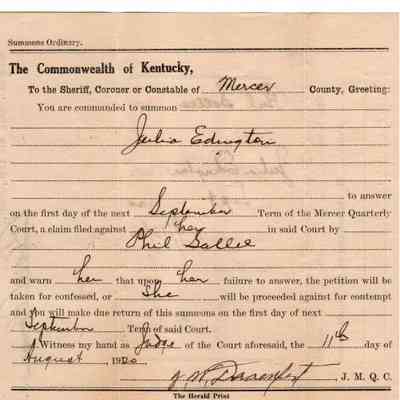 Summons Ordinary.
The Commonwealth of Kentucky,
To the Sheriff, Coroner or Constable of Mercer County, Greeting:
You are commanded to summon
Julia Edington
to answer
on the first day of the next September Term of the Mercer Quarterly
Court, a claim filed against her in said Court by
Phil Sallee
and warn her that upon her failure to answer, the petition will be
taken for confessed, or She will be proceeded against for contempt
and you will make due return of this summons on the first day of next
September Term of said Court.
Witness my hand as Judge of the Court aforesaid, the 11th day of
August, 1920
J. M. Q. C.
The Herald Print